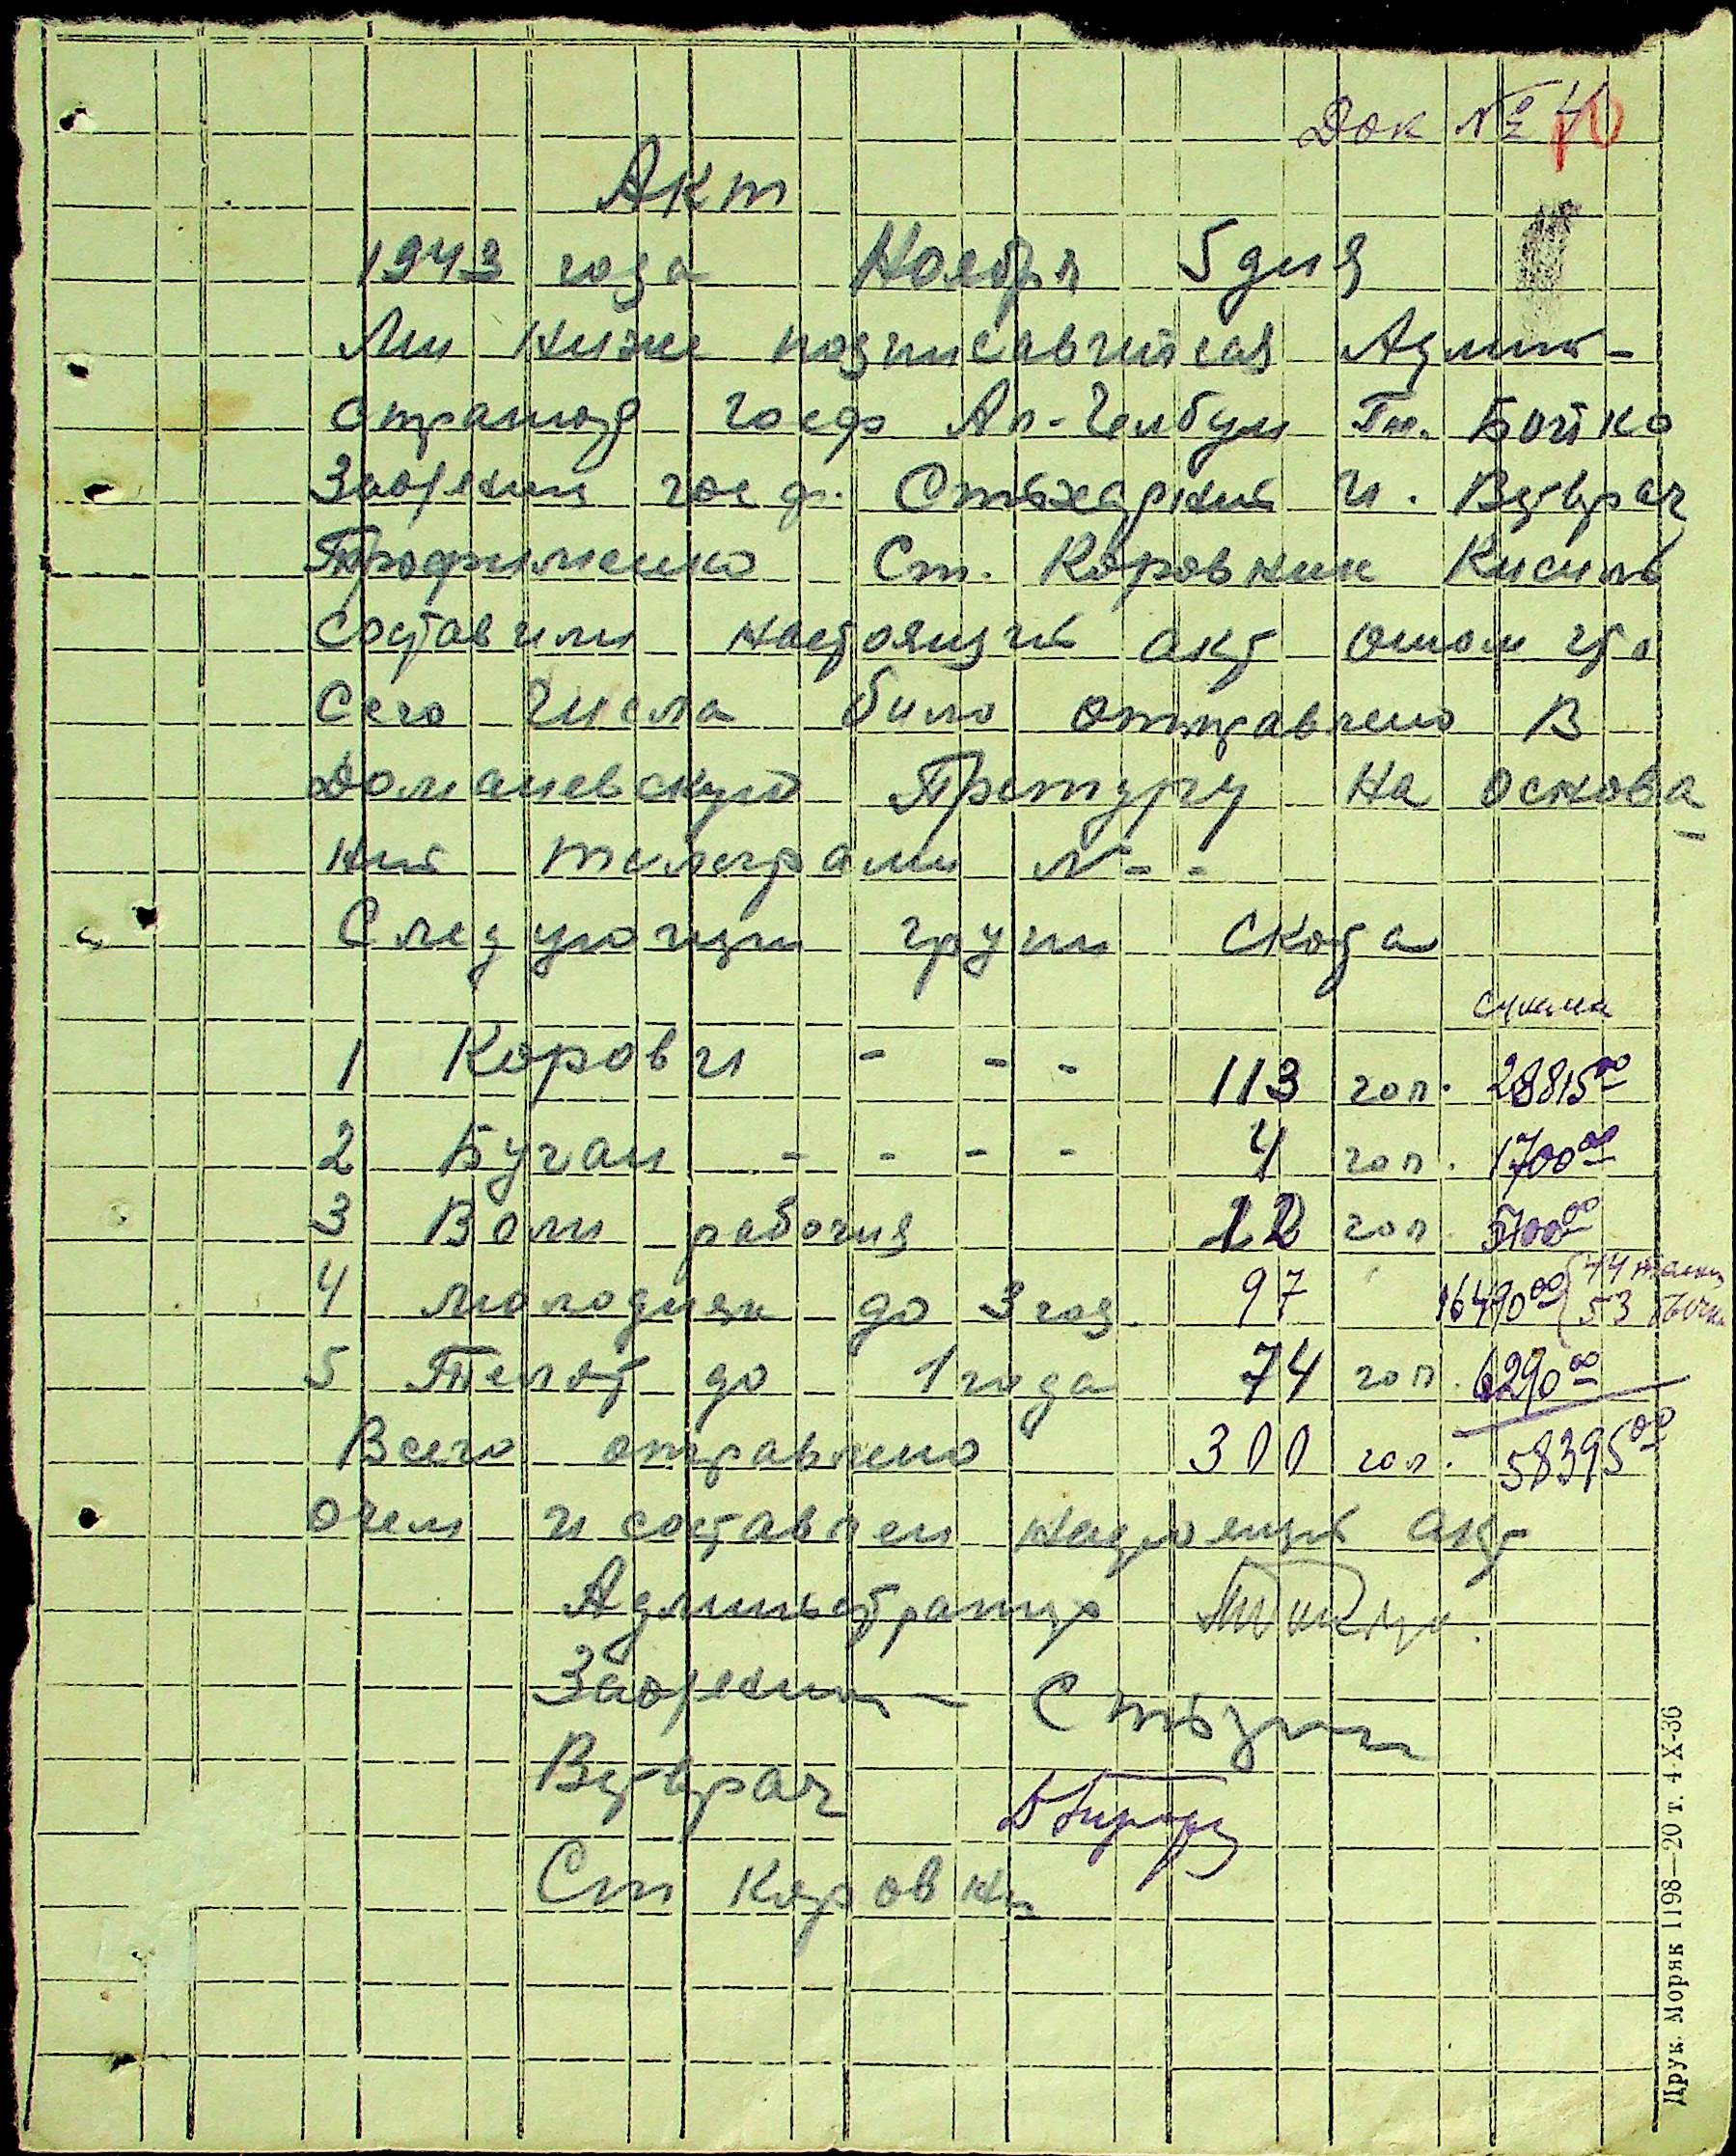 Док № 10
Акт
1943 года Ноября 5 дня
Ми ниже подписавшийся Админ-
стратор госф Ал. Бойко
Завфехии гос ф. и. Ветврач
Трофименко Ст. Коровник Кисиль
Составили настоящий акт отом что
Сего числа било отправлено В
Доманевскую Претуру На основа
ний телеграми № - -
Следующи груп скота
сумма
1 Корови - - - 113 гол. 28815 00
2 Бугаи - - - - 4 гол. 1700 00
3 Воли рабочия 12 гол 5100 00
4 Молодняк до 3 год. 97 16490 00 44 телки
53 бычка
5 Телят до 1 года 74 гол. 6290 00
Всего отправлено 300 гол. 58395 00
очем и составлен настоящий акт
Администратор
Завфехии
Ветврач
Ст Коровн
Друк. Моряк 1198—20 т. 4-X-36